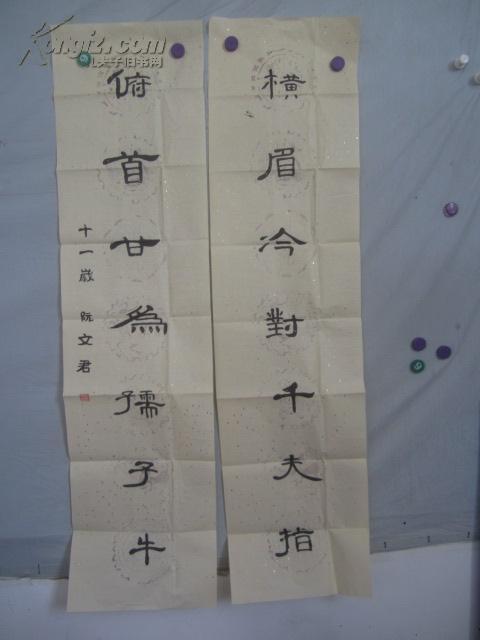 橫眉冷對千夫指
俯首甘為孺子牛
十一歲 阮文君
Kongfz.com
孔夫子旧书网